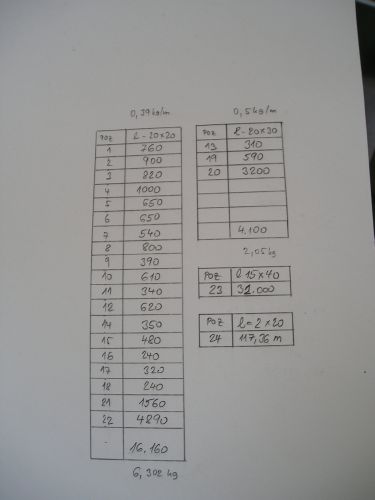 0,39 kg/m
POZ l - 20×20
1 760
2 900
3 820
4 1000
5 650
6 650
7 540
8 800
9 390
10 610
11 340
12 620
14 350
15 480
16 240
17 320
18 240
21 1560
22 4890
16.160
6,302 kg
0,5 kg/m
POZ l - 20×30
13 310
19 590
20 3200
4.100
2,05 kg
POZ l 15×40
23 32.000
POZ l = 2×20
24 117,36 m